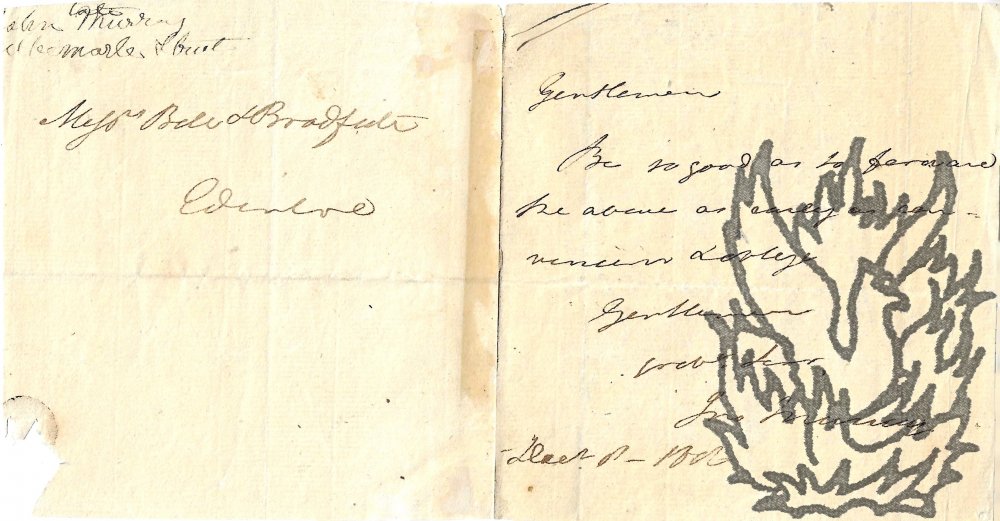 John Murray
Albemarle Street
Messrs Bell & Bradfute
Edinbro
Gentlemen
Be so good as to forward
the above as early as con-
venient & oblige
Gentlemen
yr obt Ser
Jno Murray